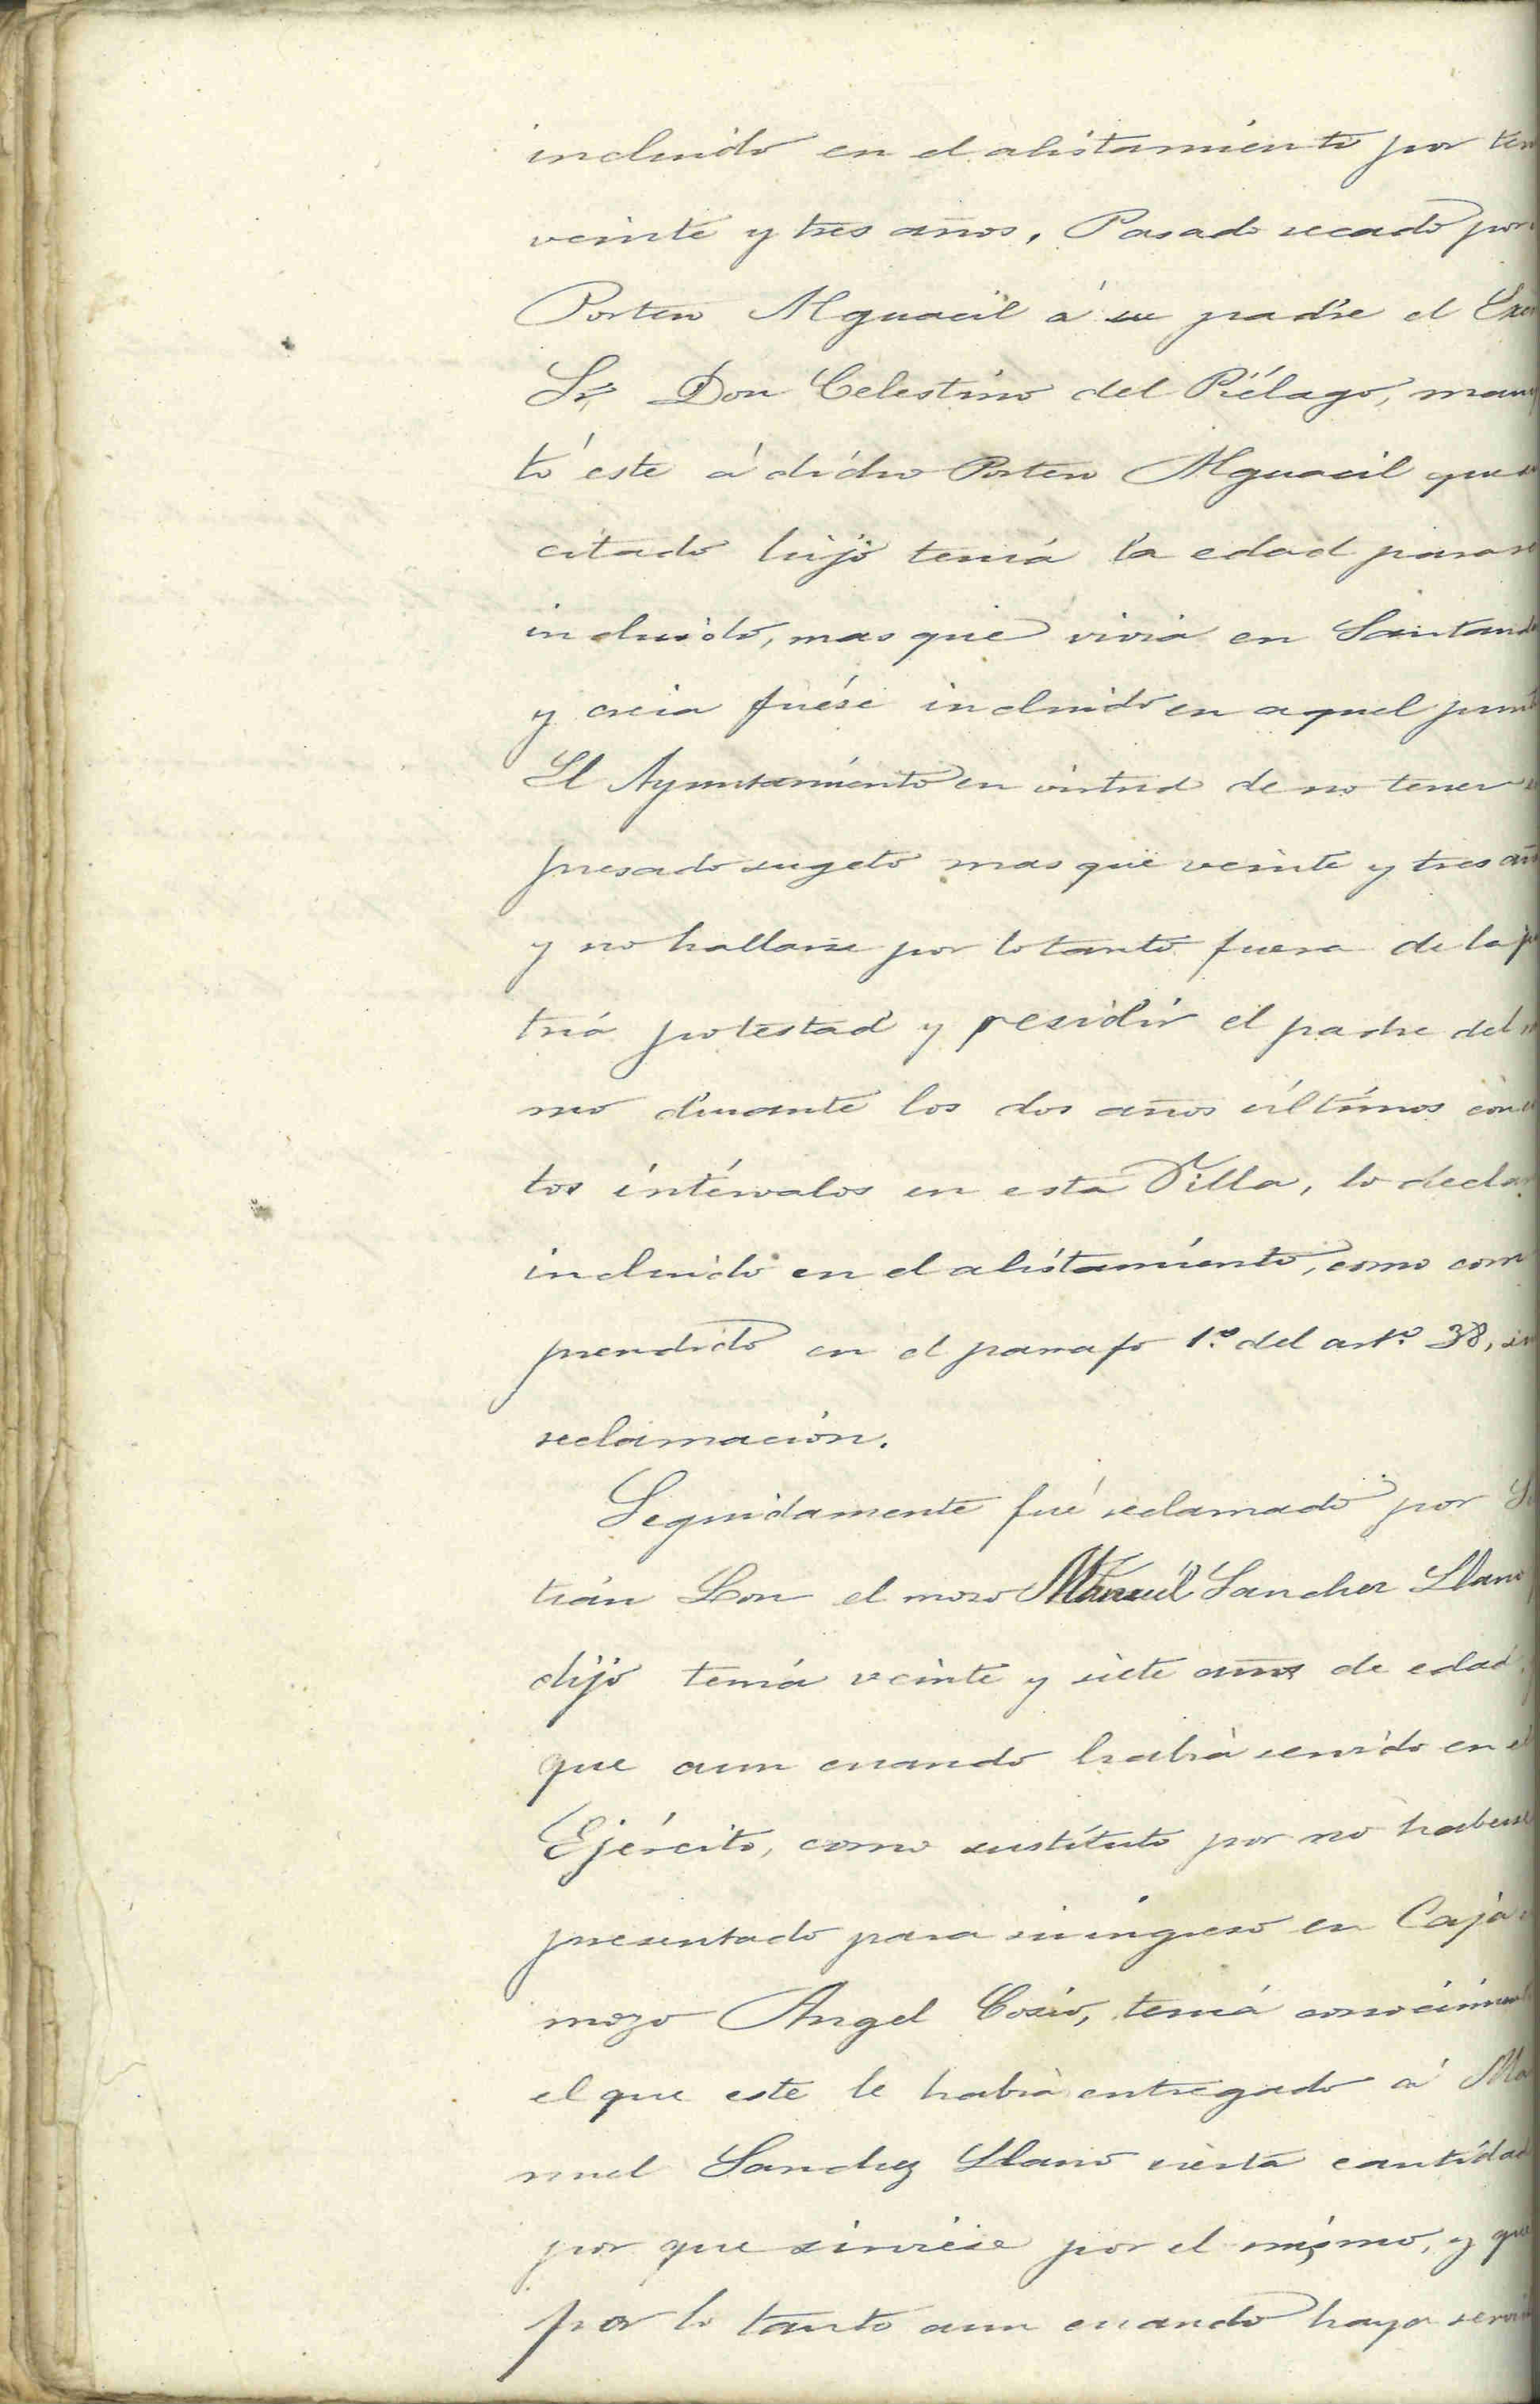 incluido en el alistamiento por ten
veinte y tres años. Pasado recado por
Portero Alguacil á su padre el Exc
Sr. Don Celestino del Piélago, man
tó este á dicho Portero Alguacil que
citado hijo tenia la edad para
incluido, mas que vivia en Santand
y creia fuése incluido en aquel punt
El Ayuntamiento en virtud de no tener
presado sugeto mas que veinte y tres añ
y no hallarse por lo tanto fuera de la p
tria potestad y residir el padre del
mo durante los dos años últimos con
tos intérvalos en esta Villa, lo declar
incluido en el alistamiento, como com
prendido en el parrafo 1.º del art.º 38, sin
reclamación.
Seguidamente fué reclamado por
trián Lon el mozo Manuél Sanchez Llano
dijo tenia veinte y siete años de edad,
que aun cuando habia servido en el
Ejército, como sustituto por no haberse
presentado para su ingreso en Caja
mozo Angel Cosio, tenia conocimient
el que este le habia entregado á Ma
nuel Sanchez Llano cierta cantidad
por que sirviése por el mismo, y que
por lo tanto aun cuando haya servid